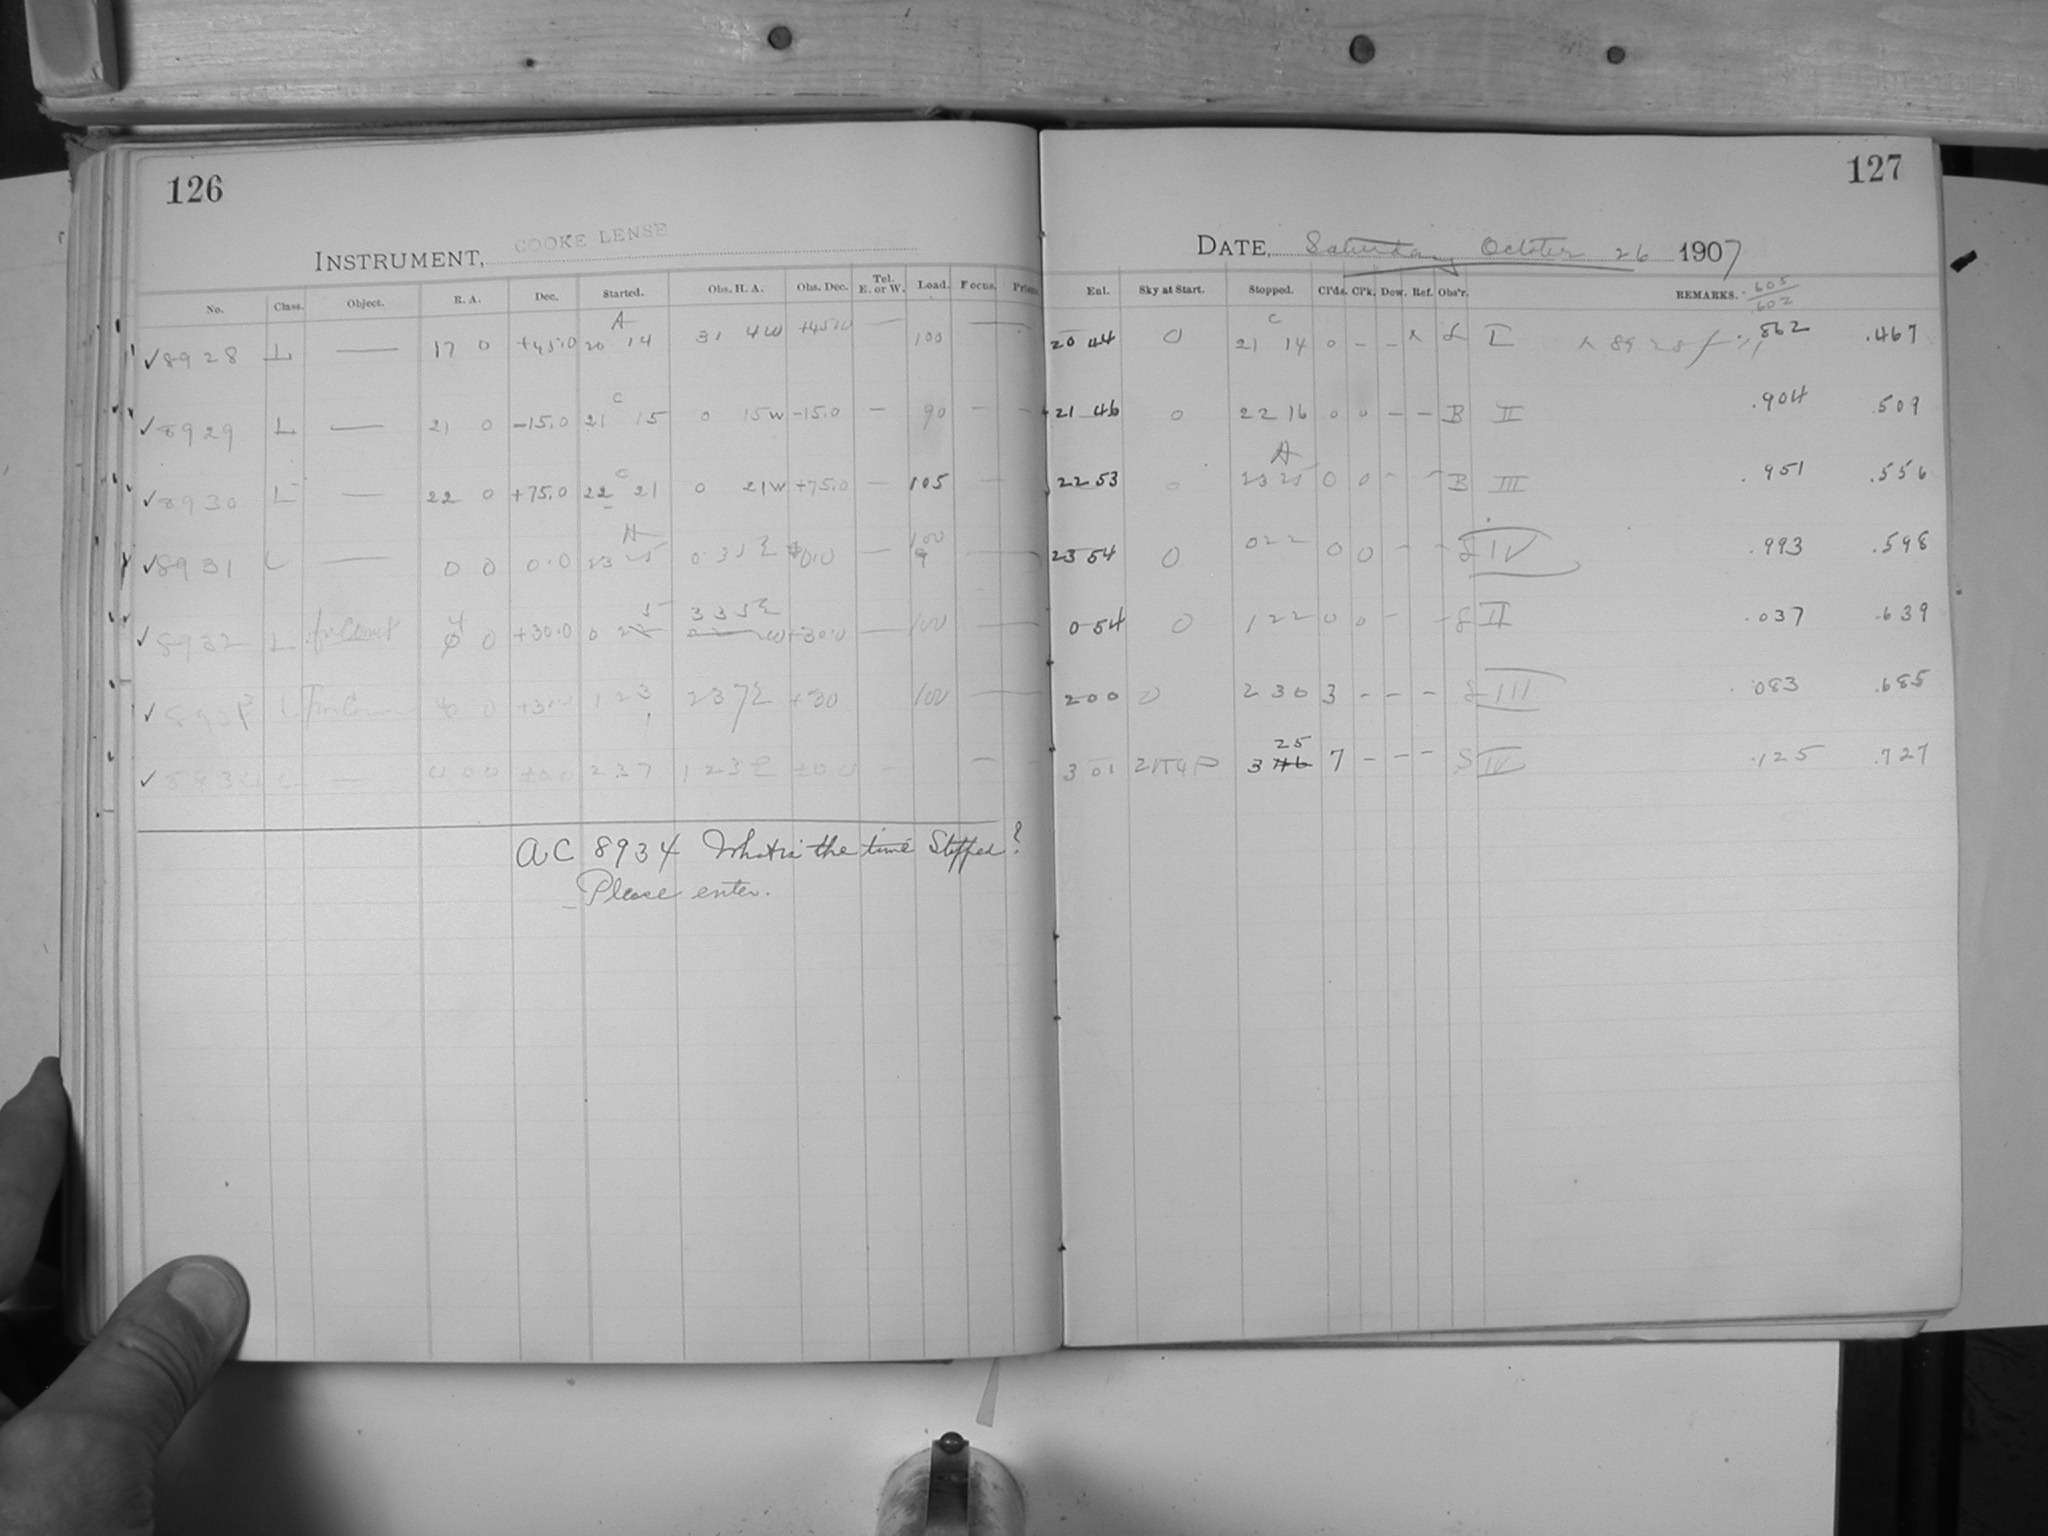 126
127
INSTRUMENT, COOKE LENSE
DATE, Saturday October 26 1907
No. Class. Object. R. A. Dec. Started. Obs. H. A. Obs. Dec. Tel. E. or W. Load. Focus. Prism
Enl. Sky at Start. Stopped. Cl'ds. Cl'k. Dew. Ref. Obs'r. REMARKS. 605/602
8928 L — 17 0 +45.0 A 20 14 31 4W +45.0 — 100 — 20 44 0 C 21 14 0 - - I .862 .467
8929 L — 21 0 -15.0 C 21 15 0 15W -15.0 — 90 - - 21 46 0 22 16 0 0 - - B II .904 .509
8930 L — 22 0 +75.0 C 22 21 0 21W +75.0 — 105 — 22 53 0 A 23 25 0 0 - - B III .951 .556
8931 L — 0 0 0.0 A 23 25 0 35E 0.0 — 100 — 23 54 0 0 22 0 0 - - IV .993 .598
8932 L for Comet 4 0 +30.0 0 25 3 35E +30.0 — 100 — 0 54 0 1 22 0 0 - - II .037 .639
8933 L 4 0 +30.0 1 23 2 37E +30 100 — 2 00 0 2 30 3 - - - III .083 .685
8934 L — 4 00 ±0.0 2 37 1 23E ±0.0 — — 3 01 3 25 46 7 - - - S IV .125 .727
AC 8934 What is the time Stopped?
Please enter.